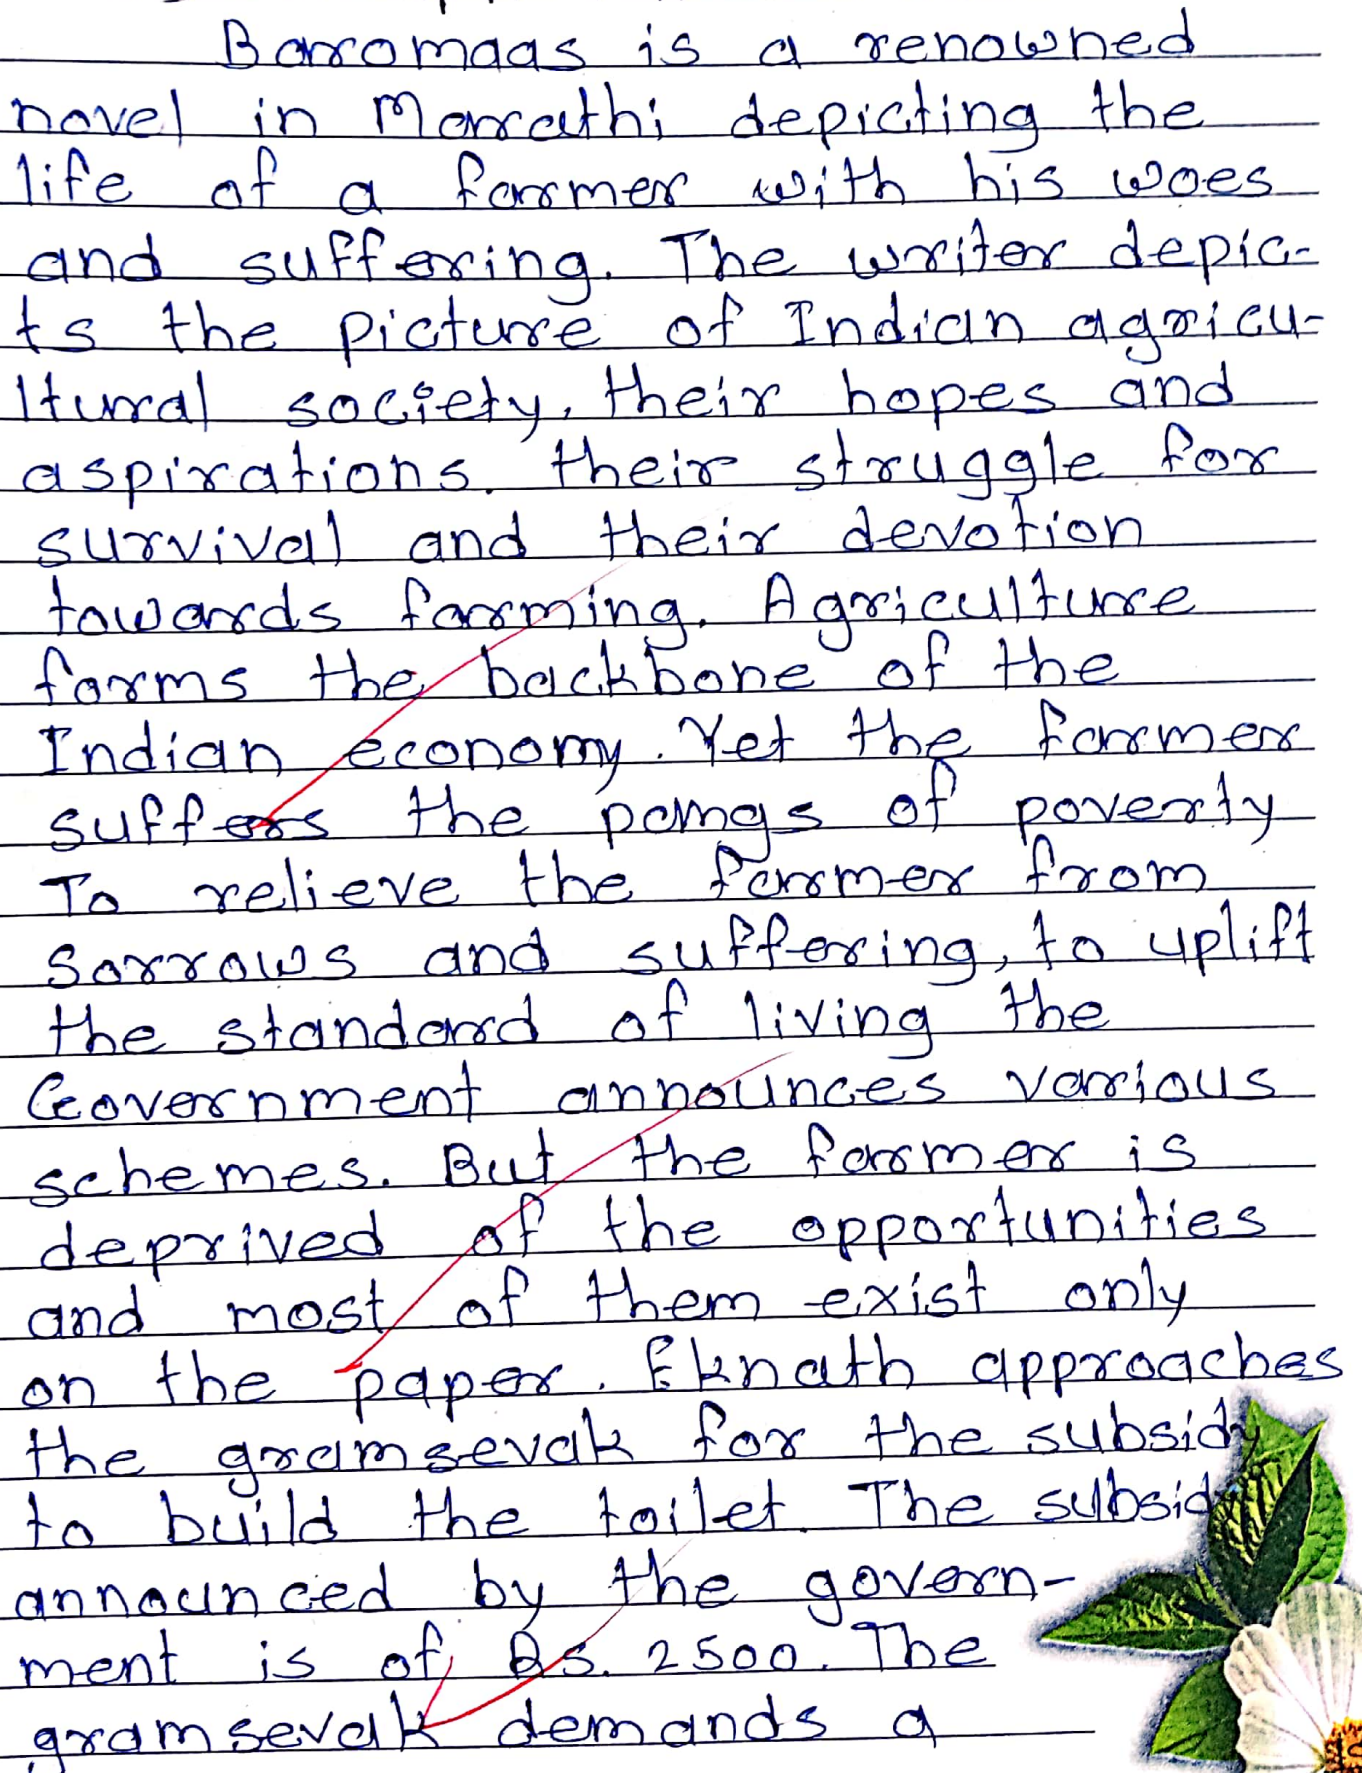 Baromaas is a renowned
novel in Marathi depicting the
life of a farmer with his woes
and suffering. The writer depic-
ts the picture of Indian agricu-
ltural society, their hopes and
aspirations, their struggle for
survival and their devotion
towards farming. Agriculture
forms the backbone of the
Indian economy. Yet the farmer
suffers the pangs of poverty
To relieve the farmer from
sorrows and suffering, to uplift
the standard of living the
Government announces various
schemes. But the farmer is
deprived of the opportunities
and most of them exist only
on the paper. Eknath approaches
the gramsevak for the subsidy
to build the toilet. The subsidy
announced by the govern-
ment is of Rs. 2500. The
gramsevak demands a